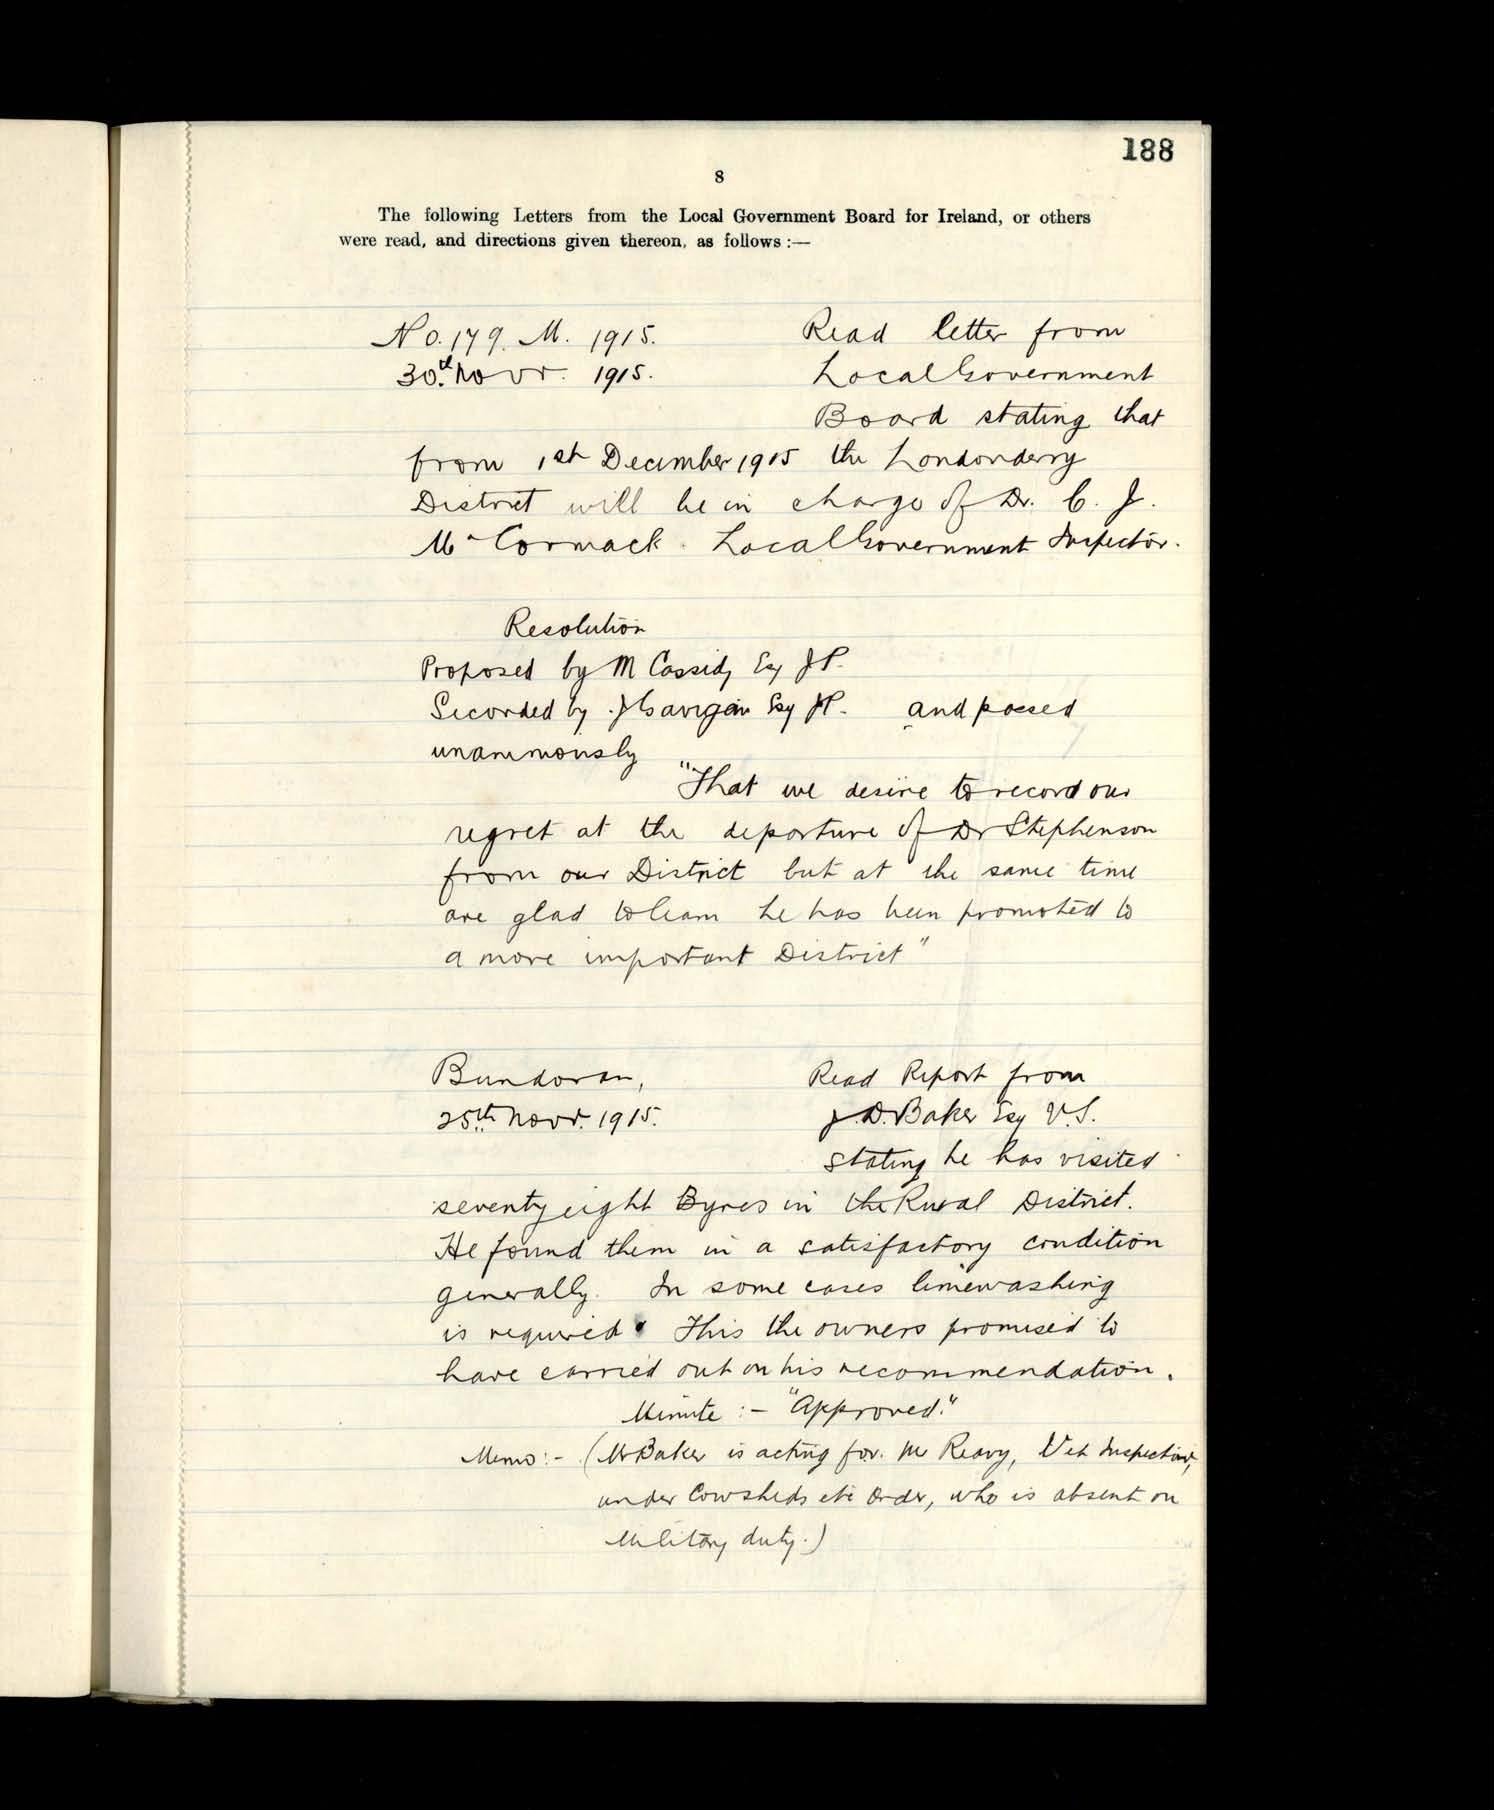 188
8
The following Letters from the Local Government Board for Ireland, or others
were read, and directions given thereon, as follows :—
No. 179. M. 1915. Read letter from
30th Novr. 1915. Local Government
Board stating that
from 1st December 1915 the Londonderry
District will be in charge of Dr. C. J.
McCormack Local Government Inspector.
Resolution
Proposed by M Cassidy Esq JP.
Seconded by J Gavigan Esq JP. and passed
unanimously
"That we desire to record our
regret at the departure of Dr Stephenson
from our District but at the same time
are glad to learn he has been promoted to
a more important District"
Bundoran, Read Report from
25th Novr. 1915. J. D. Baker Esq V.S.
stating he has visited
seventy eight Byres in the Rural District.
He found them in a satisfactory condition
generally. In some cases limewashing
is required. This the owners promised to
have carried out on his recommendation.
Minute :- "Approved."
Memo :- (Mr Baker is acting for Mr Reavy, Vet Inspector,
under Cowsheds etc Order, who is absent on
Military duty.)